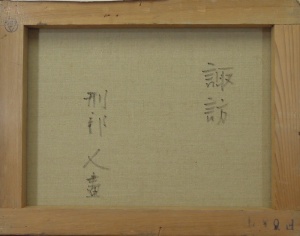 諏訪
刑部人畫